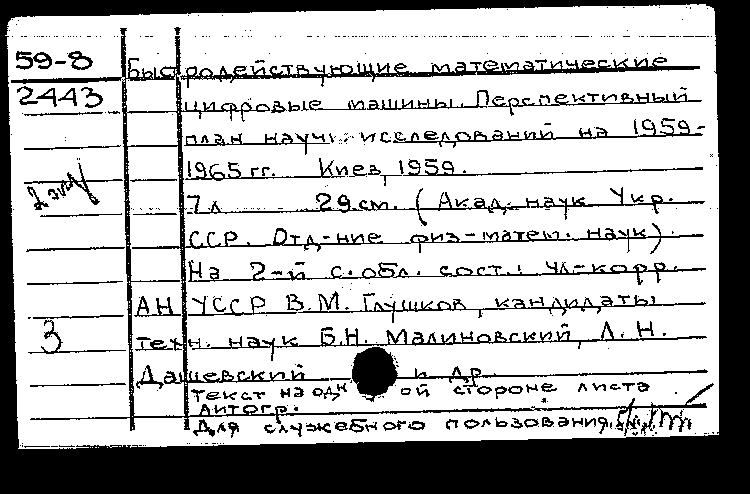 59-8
Быстродействующие математические
2443
цифровые машины. Перспективный
план научн. исследований на 1959-
1965 гг. Киев, 1959.
2 экз
7 л 29 см. (Акад. наук Укр.
ССР. Отд-ние физ-матем. наук).
На 2-й с. обл. сост.: чл-корр.
АН УССР В.М. Глушков, кандидаты
3
техн. наук Б.Н. Малиновский, Л.Н.
Дашевский и др.
Текст на одн ой стороне листа
Литогр.
Для служебного пользования.